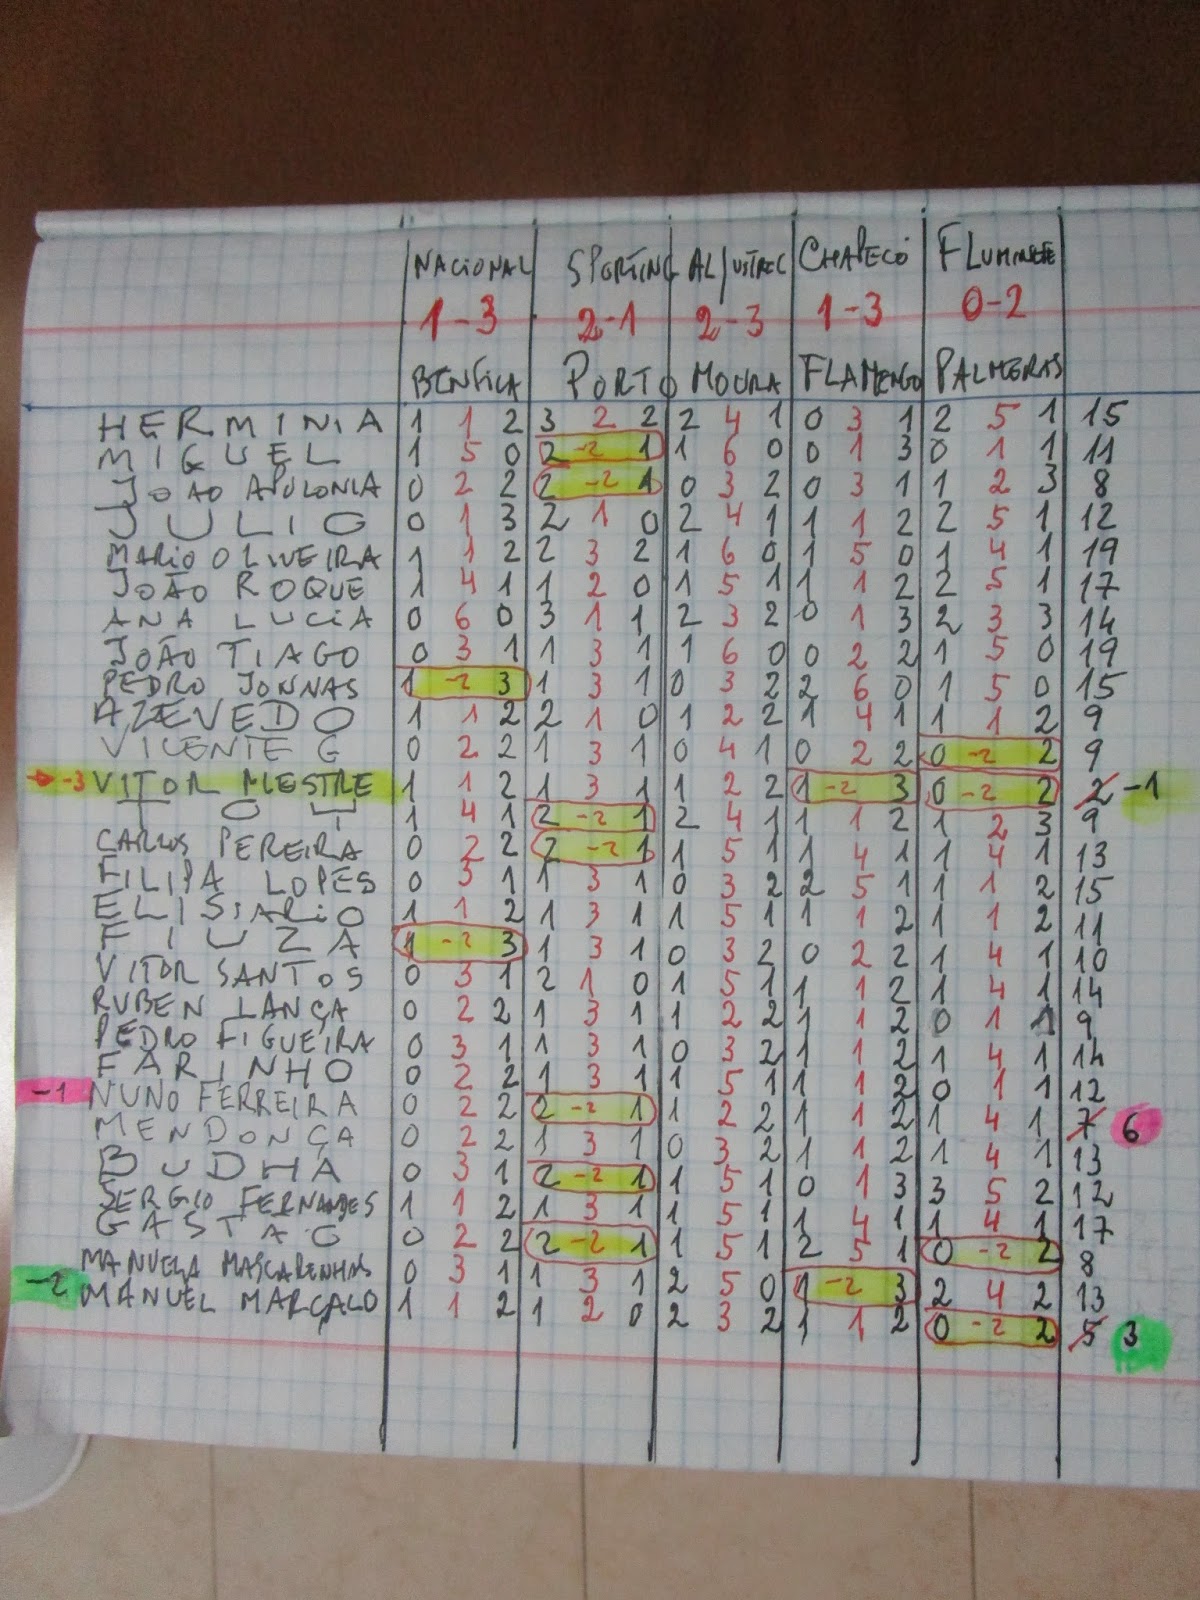 NACIONAL SPORTING ALJUSTREL CHAPECÓ FLUMINETE
1-3 2-1 2-3 1-3 0-2
BENFICA PORTO MOURA FLAMENGO PALMERAS
HERMINIA 1 1 2 3 2 2 2 4 1 0 3 1 2 5 1 15
MIGUEL 1 5 0 2 -2 1 1 6 0 0 1 3 0 1 1 11
JOÃO APOLONIA 0 2 2 2 -2 1 0 3 2 0 3 1 1 2 3 8
JULIO 0 1 3 2 1 0 2 4 1 1 1 2 2 5 1 12
MARIO OLIVEIRA 1 1 2 2 3 2 1 6 0 1 5 0 1 4 1 19
JOÃO ROQUE 1 4 1 1 2 0 1 5 1 1 1 2 2 5 1 17
ANA LUCIA 0 6 0 3 1 1 2 3 2 0 1 3 2 3 3 14
JOÃO TIAGO 0 3 1 1 3 1 1 6 0 0 2 2 1 5 0 19
PEDRO JONNAS 1 -2 3 1 3 1 0 3 2 2 6 0 1 5 0 15
AZEVEDO 1 1 2 2 1 0 1 2 2 1 4 1 1 1 2 9
VICENTE G 0 2 2 1 3 1 0 4 1 0 2 2 0 -2 2 9
-3 VITOR MESTRE 1 1 2 1 3 1 1 2 2 1 -2 3 0 -2 2 2 -1
1 4 1 2 -2 1 2 4 1 1 1 2 1 2 3 9
CARLOS PEREIRA 0 2 2 2 -2 1 1 5 1 1 4 1 1 4 1 13
FILIPA LOPES 0 3 1 1 3 1 0 3 2 2 5 1 1 1 2 15
ELISIARIO 1 1 2 1 3 1 1 5 1 1 1 2 1 1 2 11
FIUZA 1 -2 3 1 3 1 0 3 2 0 2 2 1 4 1 10
VITOR SANTOS 0 3 1 2 1 0 1 5 1 1 1 2 1 4 1 14
RUBEN LANÇA 0 2 2 1 3 1 1 2 2 1 1 2 0 1 1 9
PEDRO FIGUEIRA 0 3 1 1 3 1 0 3 2 1 1 2 1 4 1 14
FARINHO 0 2 2 1 3 1 1 5 1 1 1 2 0 1 1 12
-1 NUNO FERREIRA 0 2 2 2 -2 1 1 2 2 1 1 2 1 4 1 7 6
MENDONÇA 0 2 2 1 3 1 0 3 2 1 1 2 1 4 1 13
BUDHA 0 3 1 2 -2 1 1 5 1 0 1 3 3 5 2 12
SERGIO FERNANDES 1 1 2 1 3 1 1 5 1 1 4 1 1 4 1 17
GASTAO 0 2 2 2 -2 1 1 5 1 2 5 1 0 -2 2 8
MANUELA MASCARENHAS 0 3 1 1 3 1 2 5 0 1 -2 3 2 4 2 13
-2 MANUEL MARÇALO 1 1 2 1 2 0 2 3 2 1 1 2 0 -2 2 5 3